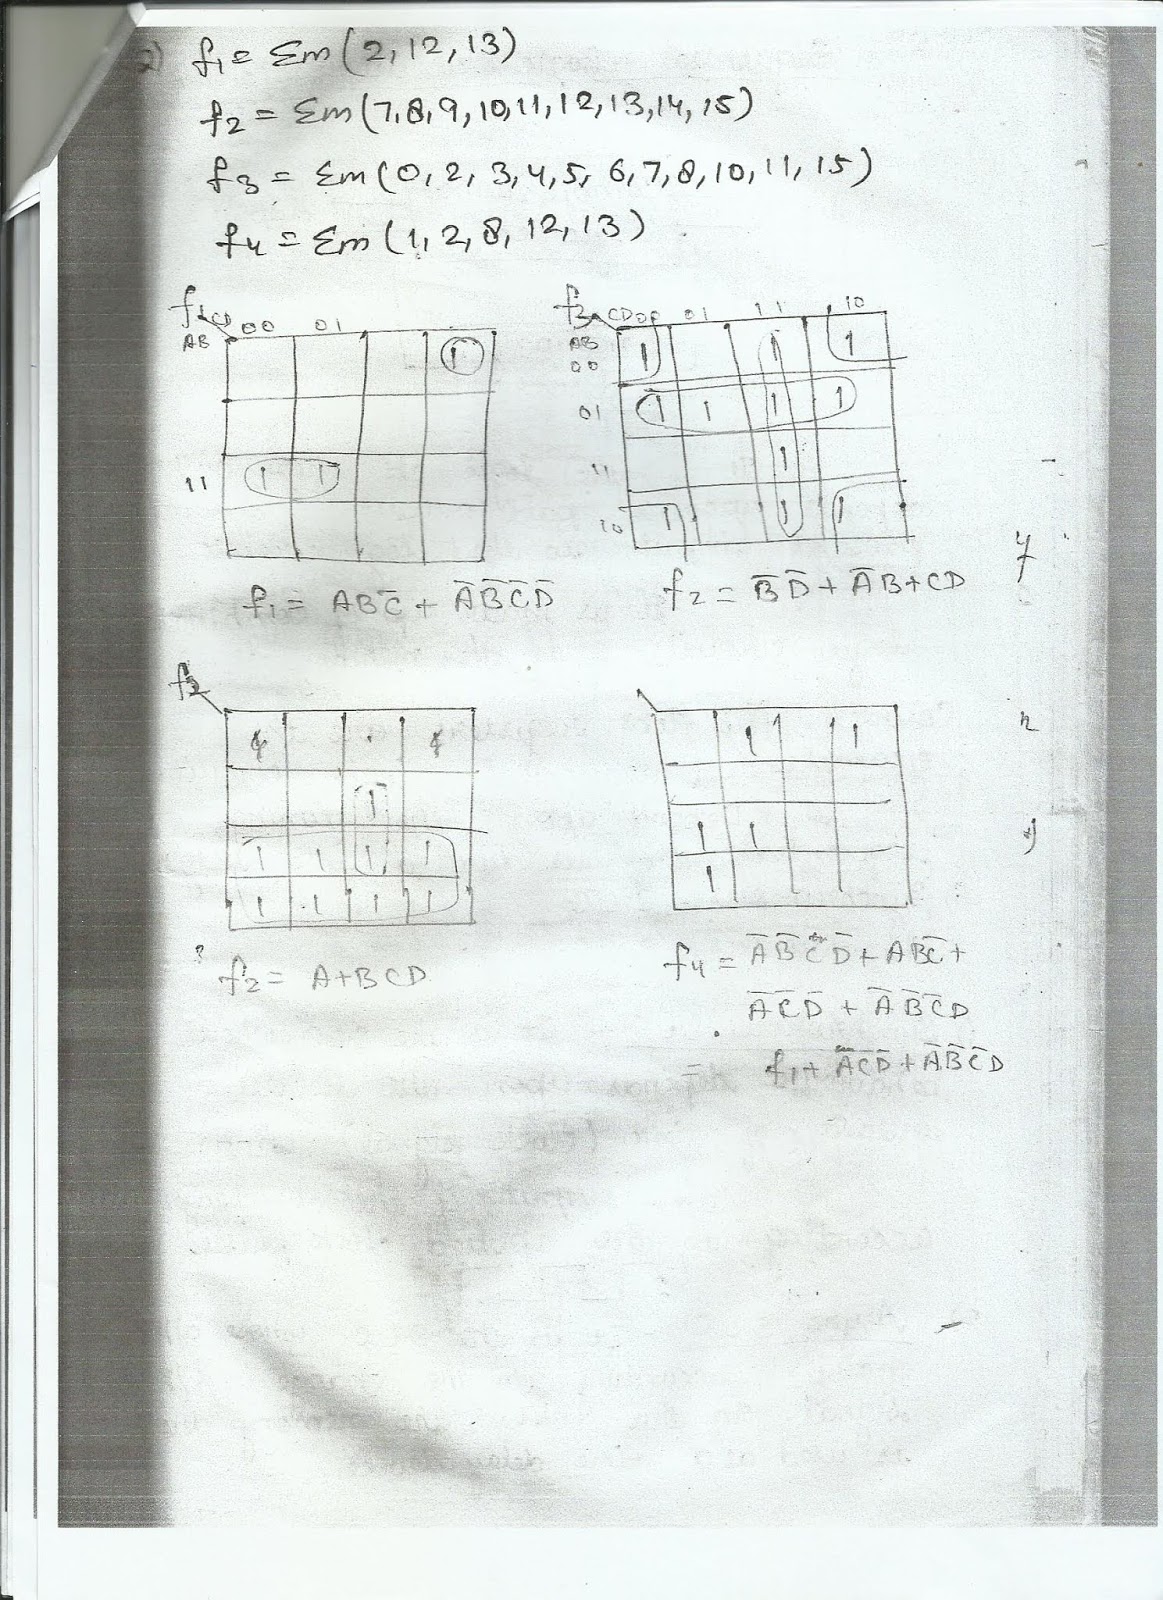 2) f1 = Σm (2, 12, 13)
f2 = Σm (7, 8, 9, 10, 11, 12, 13, 14, 15)
f3 = Σm (0, 2, 3, 4, 5, 6, 7, 8, 10, 11, 15)
f4 = Σm (1, 2, 8, 12, 13)
f1 CD 00 01
AB
1
11 1 1
f3 CD 00 01 11 10
AB
00 1 1 1
01 1 1 1 1
11 1
10 1 1 1
f1 = ABC̅ + A̅B̅C̅D̅
f2 = B̅D̅ + A̅B + CD
f2
1
1 1 1 1
1 1 1 1
1 1
1 1
1
f2 = A + BCD
f4 = A̅B̅C̅D̅ + ABC̅ +
A̅C̅D̅ + A̅B̅C̅D
= f1 + A̅C̅D̅ + A̅B̅C̅D